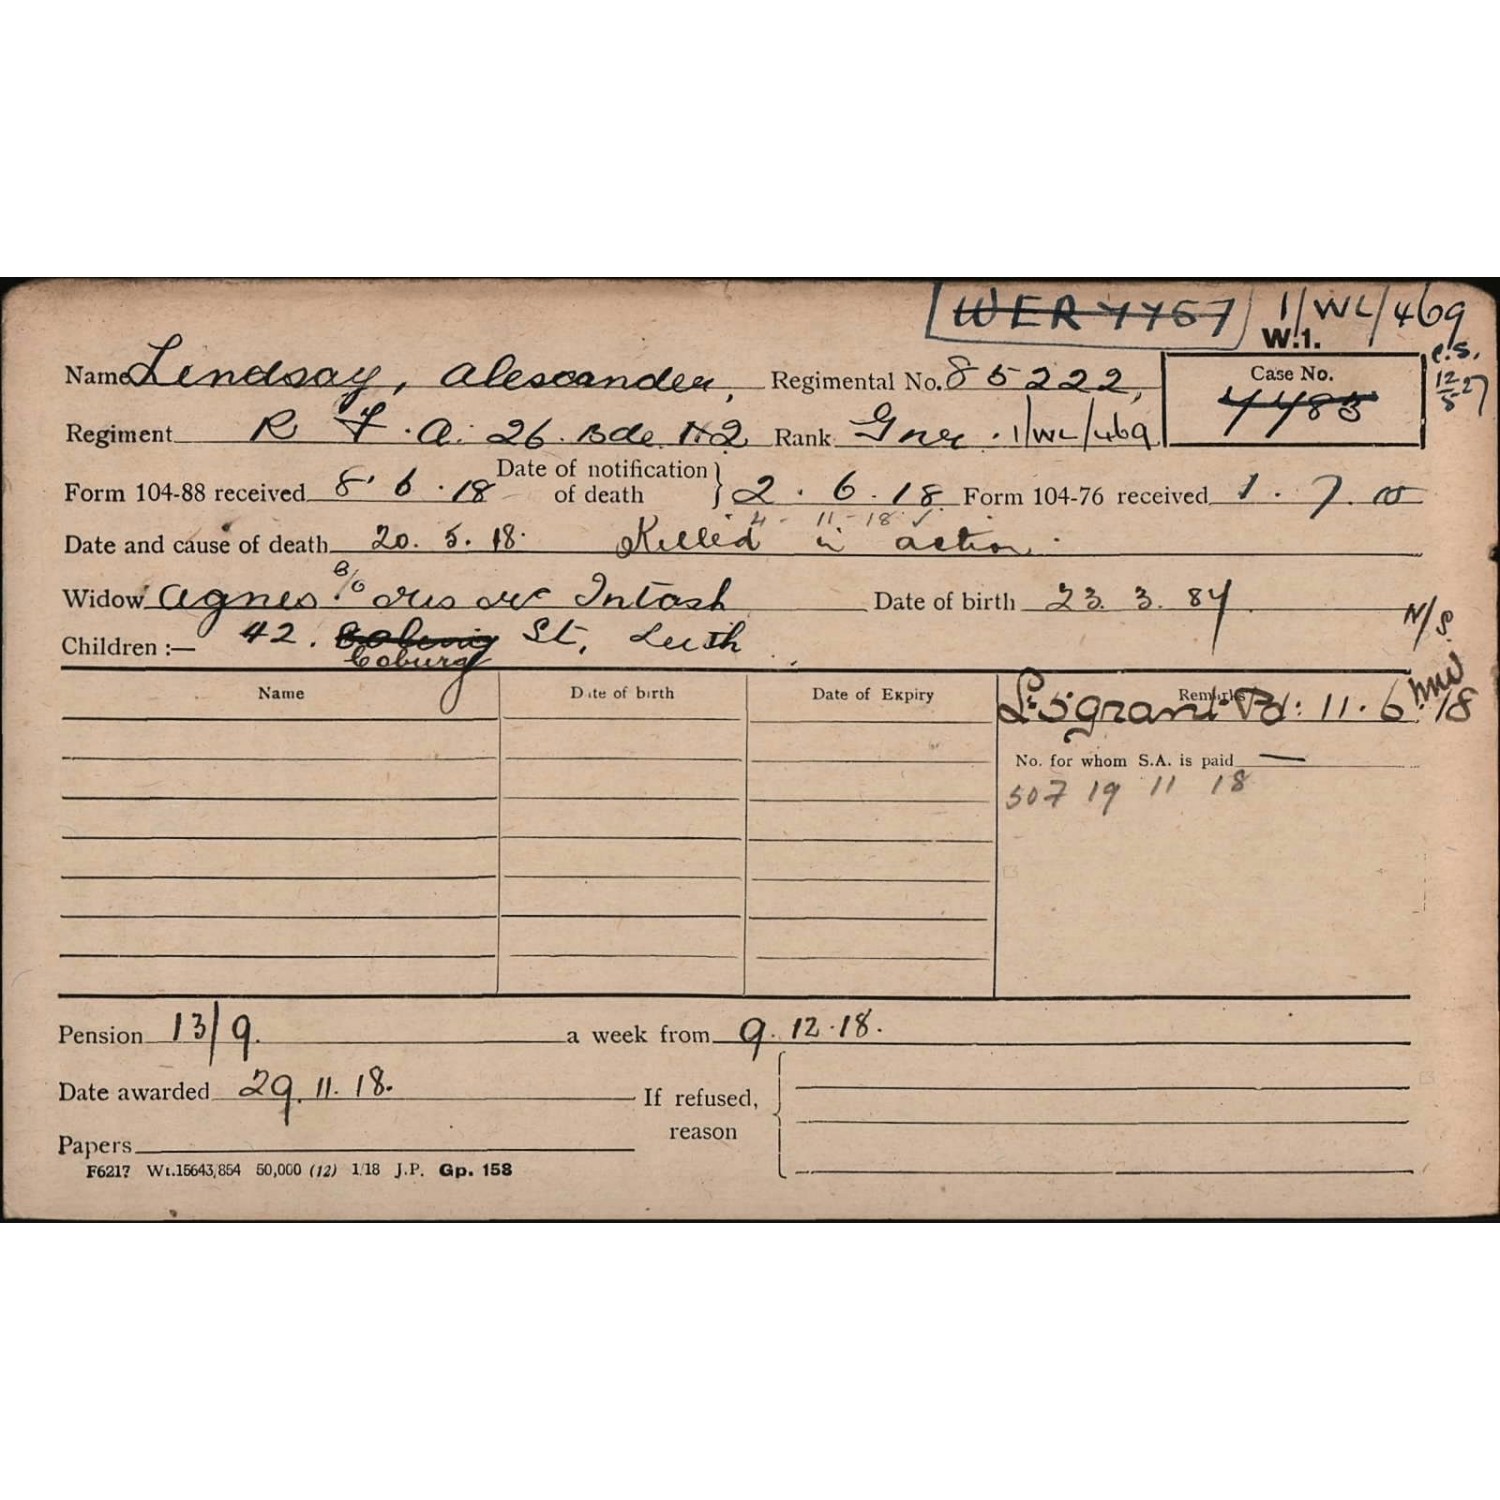 WER 7767 1/WL/469
W.1. C.S.
Name Lindsay, Alexander, Regimental No. 85222, Case No. 12/5 27
7783
Regiment R F.A. 26 Bde HQ Rank Gnr. 1/WL/469
Form 104-88 received 8.6.18 Date of notification of death } 2.6.18 Form 104-76 received 1.7.
4-11-18 ✓
Date and cause of death 20.5.18. Killed in action.
Widow Agnes. c/o Mrs Mc Intosh Date of birth 23.3.84 N/S.
Children :— 42. Coburg St, Leith
Coburg
Name Date of birth Date of Expiry Remarks
£5 grant Pd: 11.6/18
No. for whom S.A. is paid —
507 19 11 18
Pension 13/9. a week from 9.12.18.
Date awarded 29.11.18. If refused,
reason
Papers
F6217 Wt.15643,854 50,000 (12) 1/18 J.P. Gp. 158